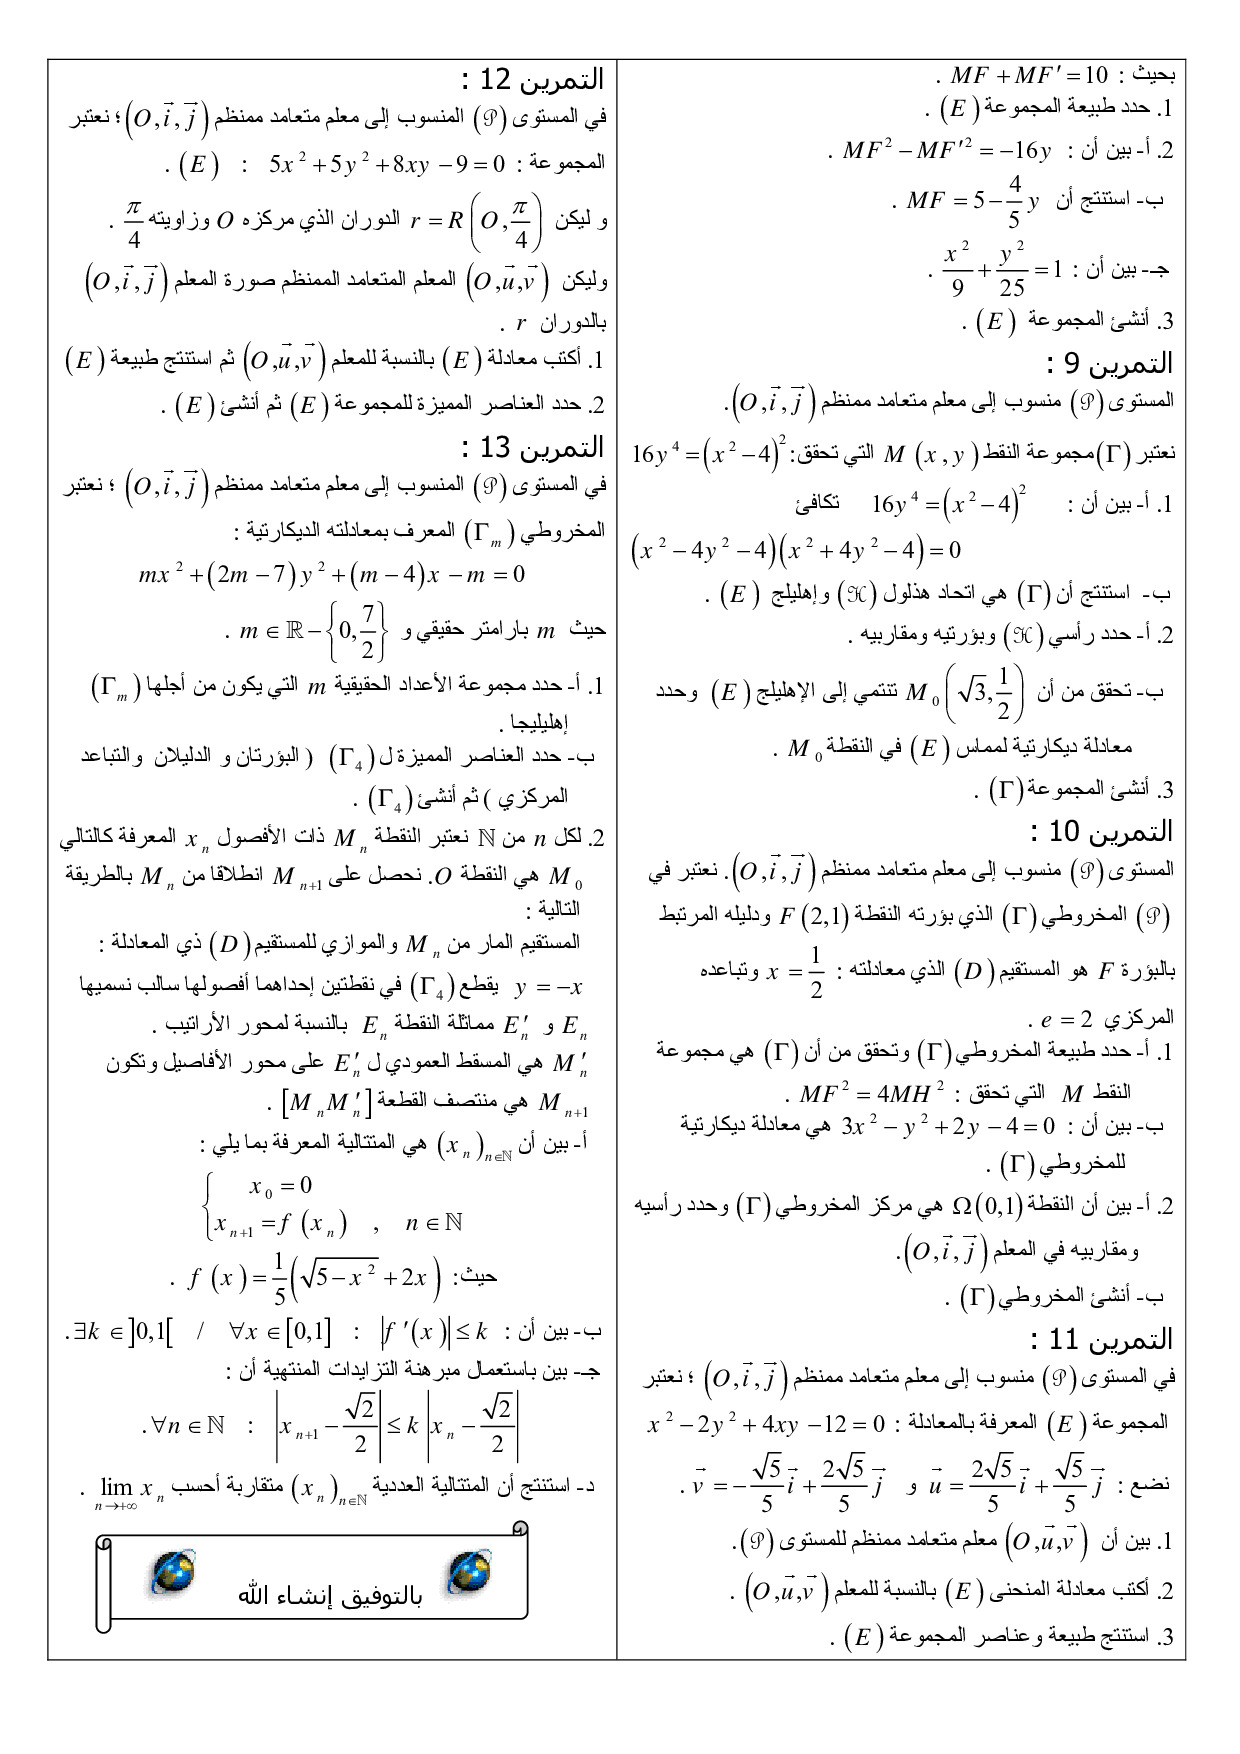 بحيث : MF + MF′ = 10 .
1. حدد طبيعة المجموعة (E) .
2. أ- بين أن : MF² − MF′² = −16y .
ب- استنتج أن MF = 5 − 4/5 y .
جـ- بين أن : x²/9 + y²/25 = 1 .
3. أنشئ المجموعة (E) .
التمرين 9 :
المستوى (𝒫) منسوب إلى معلم متعامد ممنظم (O, i⃗, j⃗).
نعتبر (Γ) مجموعة النقط M(x, y) التي تحقق: 16y⁴ = (x² − 4)²
1. أ- بين أن : 16y⁴ = (x² − 4)² تكافئ
(x² − 4y² − 4)(x² + 4y² − 4) = 0
ب- استنتج أن (Γ) هي اتحاد هذلول (ℋ) وإهليلج (E) .
2. أ- حدد رأسي (ℋ) وبؤرتيه ومقاربيه .
ب- تحقق من أن M₀(√3, 1/2) تنتمي إلى الإهليلج (E) وحدد
معادلة ديكارتية لمماس (E) في النقطة M₀ .
3. أنشئ المجموعة (Γ) .
التمرين 10 :
المستوى (𝒫) منسوب إلى معلم متعامد ممنظم (O, i⃗, j⃗). نعتبر في
(𝒫) المخروطي (Γ) الذي بؤرته النقطة F(2,1) ودليله المرتبط
بالبؤرة F هو المستقيم (D) الذي معادلته : x = 1/2 وتباعده
المركزي e = 2 .
1. أ- حدد طبيعة المخروطي (Γ) وتحقق من أن (Γ) هي مجموعة
النقط M التي تحقق : MF² = 4MH² .
ب- بين أن : 3x² − y² + 2y − 4 = 0 هي معادلة ديكارتية
للمخروطي (Γ) .
2. أ- بين أن النقطة Ω(0,1) هي مركز المخروطي (Γ) وحدد رأسيه
ومقاربيه في المعلم (O, i⃗, j⃗).
ب- أنشئ المخروطي (Γ) .
التمرين 11 :
في المستوى (𝒫) منسوب إلى معلم متعامد ممنظم (O, i⃗, j⃗) ؛ نعتبر
المجموعة (E) المعرفة بالمعادلة : x² − 2y² + 4xy − 12 = 0
نضع : u⃗ = 2√5/5 i⃗ + √5/5 j⃗ و v⃗ = −√5/5 i⃗ + 2√5/5 j⃗ .
1. بين أن (O, u⃗, v⃗) معلم متعامد ممنظم للمستوى (𝒫).
2. أكتب معادلة المنحنى (E) بالنسبة للمعلم (O, u⃗, v⃗) .
3. استنتج طبيعة وعناصر المجموعة (E) .
التمرين 12 :
في المستوى (𝒫) المنسوب إلى معلم متعامد ممنظم (O, i⃗, j⃗) ؛ نعتبر
المجموعة : (E) : 5x² + 5y² + 8xy − 9 = 0 .
و ليكن r = R(O, π/4) الدوران الذي مركزه O وزاويته π/4 .
وليكن (O, u⃗, v⃗) المعلم المتعامد الممنظم صورة المعلم (O, i⃗, j⃗)
بالدوران r .
1. أكتب معادلة (E) بالنسبة للمعلم (O, u⃗, v⃗) ثم استنتج طبيعة (E)
2. حدد العناصر المميزة للمجموعة (E) ثم أنشئ (E) .
التمرين 13 :
في المستوى (𝒫) المنسوب إلى معلم متعامد ممنظم (O, i⃗, j⃗) ؛ نعتبر
المخروطي (Γₘ) المعرف بمعادلته الديكارتية :
mx² + (2m − 7)y² + (m − 4)x − m = 0
حيث m بارامتر حقيقي و m ∈ ℝ − {0, 7/2} .
1. أ- حدد مجموعة الأعداد الحقيقية m التي يكون من أجلها (Γₘ)
إهليليجا .
ب- حدد العناصر المميزة ل (Γ₄) ( البؤرتان و الدليلان والتباعد
المركزي ) ثم أنشئ (Γ₄) .
2. لكل n من ℕ نعتبر النقطة Mₙ ذات الأفصول xₙ المعرفة كالتالي
M₀ هي النقطة O. نحصل على Mₙ₊₁ انطلاقا من Mₙ بالطريقة
التالية :
المستقيم المار من Mₙ والموازي للمستقيم (D) ذي المعادلة :
y = −x يقطع (Γ₄) في نقطتين إحداهما أفصولها سالب نسميها
Eₙ و E′ₙ مماثلة النقطة Eₙ بالنسبة لمحور الأراتيب .
M′ₙ هي المسقط العمودي ل E′ₙ على محور الأفاصيل وتكون
Mₙ₊₁ هي منتصف القطعة [MₙM′ₙ] .
أ- بين أن (xₙ)ₙ∈ℕ هي المتتالية المعرفة بما يلي :
{ x₀ = 0
xₙ₊₁ = f(xₙ) , n ∈ ℕ
حيث: f(x) = 1/5(√(5 − x²) + 2x) .
ب- بين أن : ∃k ∈ ]0,1[ / ∀x ∈ [0,1] : |f′(x)| ≤ k .
جـ- بين باستعمال مبرهنة التزايدات المنتهية أن :
∀n ∈ ℕ : |xₙ₊₁ − √2/2| ≤ k|xₙ − √2/2| .
د- استنتج أن المتتالية العددية (xₙ)ₙ∈ℕ متقاربة أحسب lim xₙ n→+∞ .
بالتوفيق إنشاء الله